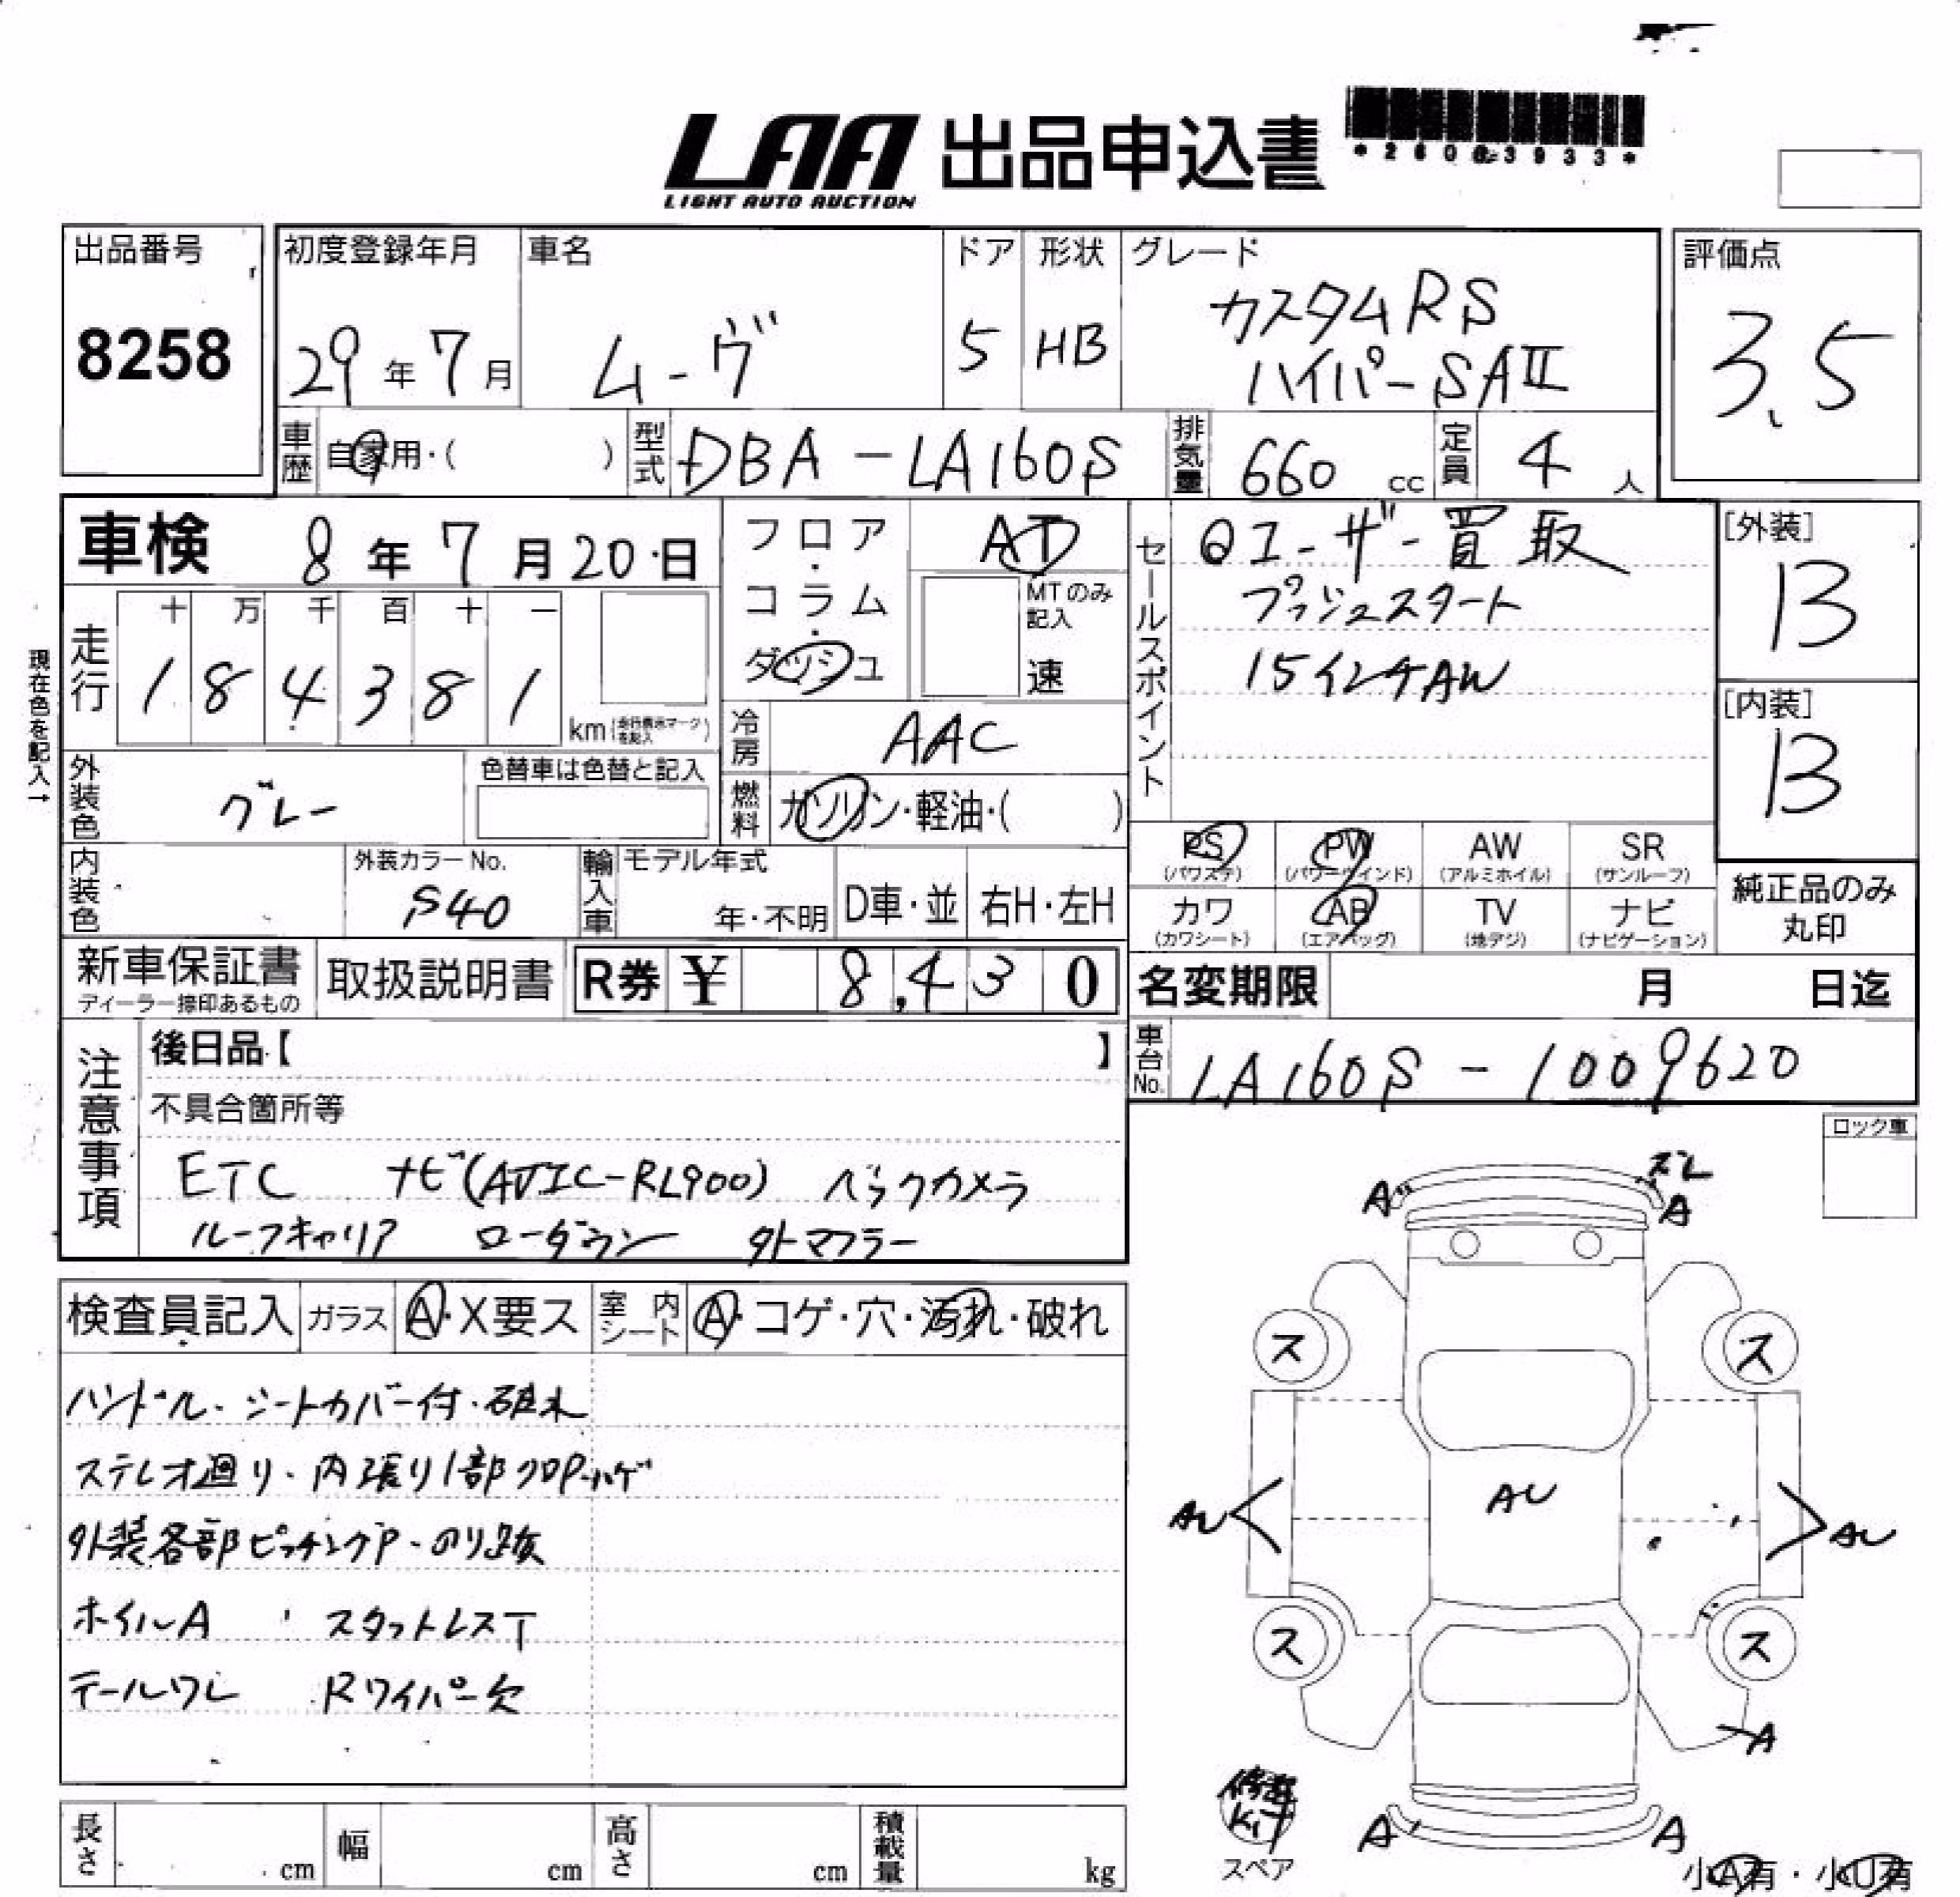 LAA 出品申込書
LIGHT AUTO AUCTION
出品番号
8258
初度登録年月
29年7月
車名
ムーヴ
ドア
5
形状
HB
グレード
カスタムRS
ハイパーSAⅡ
評価点
3.5
車歴 自家用・( )
型式 DBA-LA160S
排気量 660 cc
定員 4 人
車検 8年7月20日
走行
十 万 千 百 十 一
1 8 4 3 8 1
km(走行表示マークを記入)
現在色を記入→
フロア・コラム・ダッシュ
AT
MTのみ記入
速
冷房 AAC
燃料 ガソリン・軽油・( )
セールスポイント
ユーザー買取
プッシュスタート
15インチAW
[外装]
B
[内装]
B
外装色 グレー
色替車は色替と記入
内装色
外装カラーNo.
S40
輸入車 モデル年式
年・不明
D車・並
右H・左H
PS (パワステ)
PW (パワーウインド)
AW (アルミホイル)
SR (サンルーフ)
カワ (カワシート)
AB (エアバッグ)
TV (地デジ)
ナビ (ナビゲーション)
純正品のみ丸印
新車保証書
ディーラー捺印あるもの
取扱説明書
R券 ¥ 8,430
名変期限 月 日迄
車台No. LA160S-1009620
注意事項
後日品【 】
不具合箇所等
ETC ナビ(AVIC-RL900) バックカメラ
ルーフキャリア ローダウン 外マフラー
ロック車
検査員記入
ガラス A・X要ス
室内シート A・コゲ・穴・汚れ・破れ
ハンドル・シートカバー付・破れ
ステレオ廻り・内張り1部クロP・ハゲ
外装各部ピッチングP・のり跡
ホイルA スタットレスT
テールワレ Rワイパー欠
A
ズレ
A
ス
ス
AU
AU
AU
ス
ス
A
A
A
修理Kit
スペア
小A有・小U有
長さ cm
幅 cm
高さ cm
積載量 kg